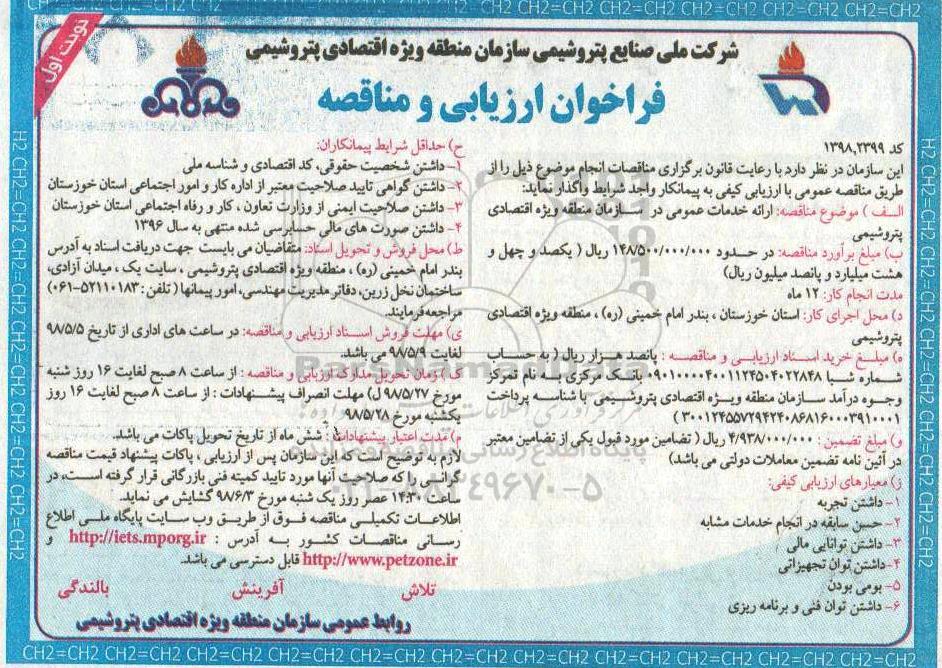 نوبت اول
شرکت ملی صنایع پتروشیمی سازمان منطقه ویژه اقتصادی پتروشیمی
فراخوان ارزیابی و مناقصه
کد ۱۳۹۸,۲۳۹۹
این سازمان در نظر دارد با رعایت قانون برگزاری مناقصات انجام موضوع ذیل را از
طریق مناقصه عمومی با ارزیابی کیفی به پیمانکار واجد شرایط واگذار نماید:
الف ) موضوع مناقصه: ارائه خدمات عمومی در سازمان منطقه ویژه اقتصادی
پتروشیمی
ب) مبلغ برآورد مناقصه: در حدود ۱۴۸/۵۰۰/۰۰۰/۰۰۰ ریال ( یکصد و چهل و
هشت میلیارد و پانصد میلیون ریال)
مدت انجام کار: ۱۲ ماه
د) محل اجرای کار: استان خوزستان ، بندر امام خمینی (ره) ، منطقه ویژه اقتصادی
پتروشیمی
ه) مبلغ خرید اسناد ارزیابی و مناقصه : پانصد هزار ریال ( به حساب
شماره شبا ۰۹۰۱۰۰۰۰۴۰۰۱۱۲۴۵۰۴۰۲۲۸۴۸ بانک مرکزی به نام تمرکز
وجوه درآمد سازمان منطقه ویژه اقتصادی پتروشیمی با شناسه پرداخت
( ۳۰۰۱۲۴۵۵۷۲۹۴۲۴۰۸۶۸۱۶۰۰۰۳۹۱۰۰۰۱
و) مبلغ تضمین : ۴/۹۳۸/۰۰۰/۰۰۰ ریال ( تضامین مورد قبول یکی از تضامین معتبر
در آئین نامه تضمین معاملات دولتی می باشد)
ز) معیارهای ارزیابی کیفی:
۱- داشتن تجربه
۲- حسن سابقه در انجام خدمات مشابه
۳- داشتن توانایی مالی
۴-داشتن توان تجهیزاتی
۵- بومی بودن
۶- داشتن توان فنی و برنامه ریزی
ح) حداقل شرایط پیمانکاران:
۱- داشتن شخصیت حقوقی، کد اقتصادی و شناسه ملی
۲- داشتن گواهی تایید صلاحیت معتبر از اداره کار و امور اجتماعی استان خوزستان
۳- داشتن صلاحیت ایمنی از وزارت تعاون ، کار و رفاه اجتماعی استان خوزستان
۴- داشتن صورت های مالی حسابرسی شده منتهی به سال ۱۳۹۶
ط) محل فروش و تحویل اسناد: متقاضیان می بایست جهت دریافت اسناد به آدرس
بندر امام خمینی (ره) ، منطقه ویژه اقتصادی پتروشیمی ، سایت یک ، میدان آزادی،
ساختمان نخل زرین، دفاتر مدیریت مهندسی، امور پیمانها ( تلفن: ۵۲۱۱۰۱۸۳-۰۶۱)
مراجعه فرمایند.
ی) مهلت فروش اسناد ارزیابی و مناقصه: در ساعت های اداری از تاریخ ۹۸/۵/۵
لغایت ۹۸/۵/۹ می باشد.
ک) زمان تحویل مدارک ارزیابی و مناقصه : از ساعت ۸ صبح لغایت ۱۶ روز شنبه
مورخ ۹۸/۵/۲۷ ل) مهلت انصراف پیشنهادات : از ساعت ۸ صبح لغایت ۱۶ روز
یکشنبه مورخ ۹۸/۵/۲۸
م) مدت اعتبار پیشنهادات : شش ماه از تاریخ تحویل پاکات می باشد.
لازم به توضیح است که این سازمان پس از ارزیابی ، پاکات پیشنهاد قیمت مناقصه
گرانی را که صلاحیت آنها مورد تایید کمیته فنی بازرگانی قرار گرفته است، در
ساعت ۱۴:۳۰ عصر روز یک شنبه مورخ ۹۸/۶/۳ گشایش می نماید.
اطلاعات تکمیلی مناقصه فوق از طریق وب سایت پایگاه ملی اطلاع
رسانی مناقصات کشور به آدرس : http://iets.mporg.ir و
http://www.petzone.ir قابل دسترسی می باشد.
تلاش آفرینش بالندگی
روابط عمومی سازمان منطقه ویژه اقتصادی پتروشیمی